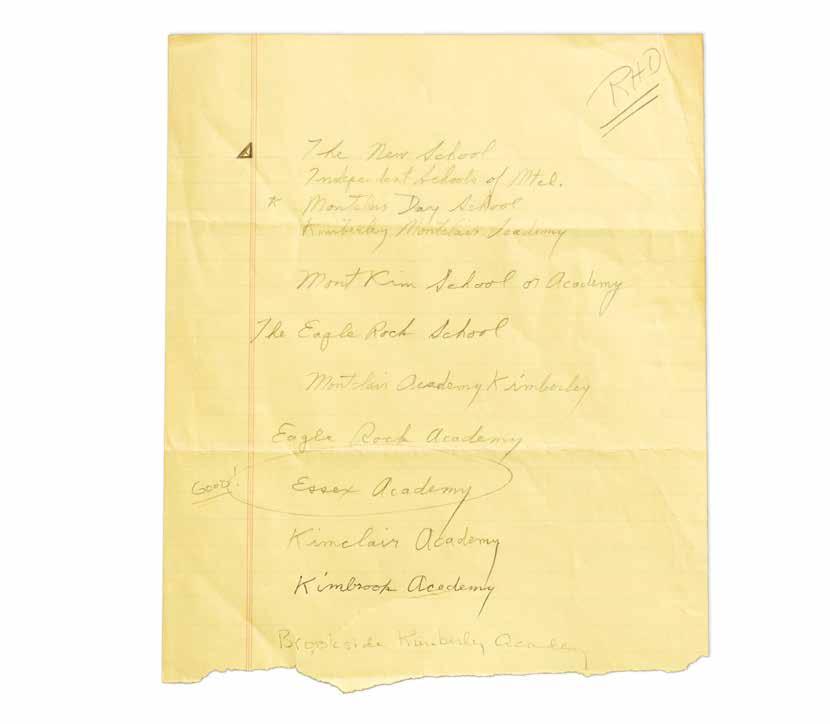 RHD
The New School
Independent Schools of Mtcl.
* Montclair Day School
Kimberley Montclair Academy
Mont Kim School or Academy
The Eagle Rock School
Montclair Academy Kimberley
Eagle Rock Academy
GOOD! Essex Academy
Kimclair Academy
Kimbrook Academy
Brookside Kimberley Academy